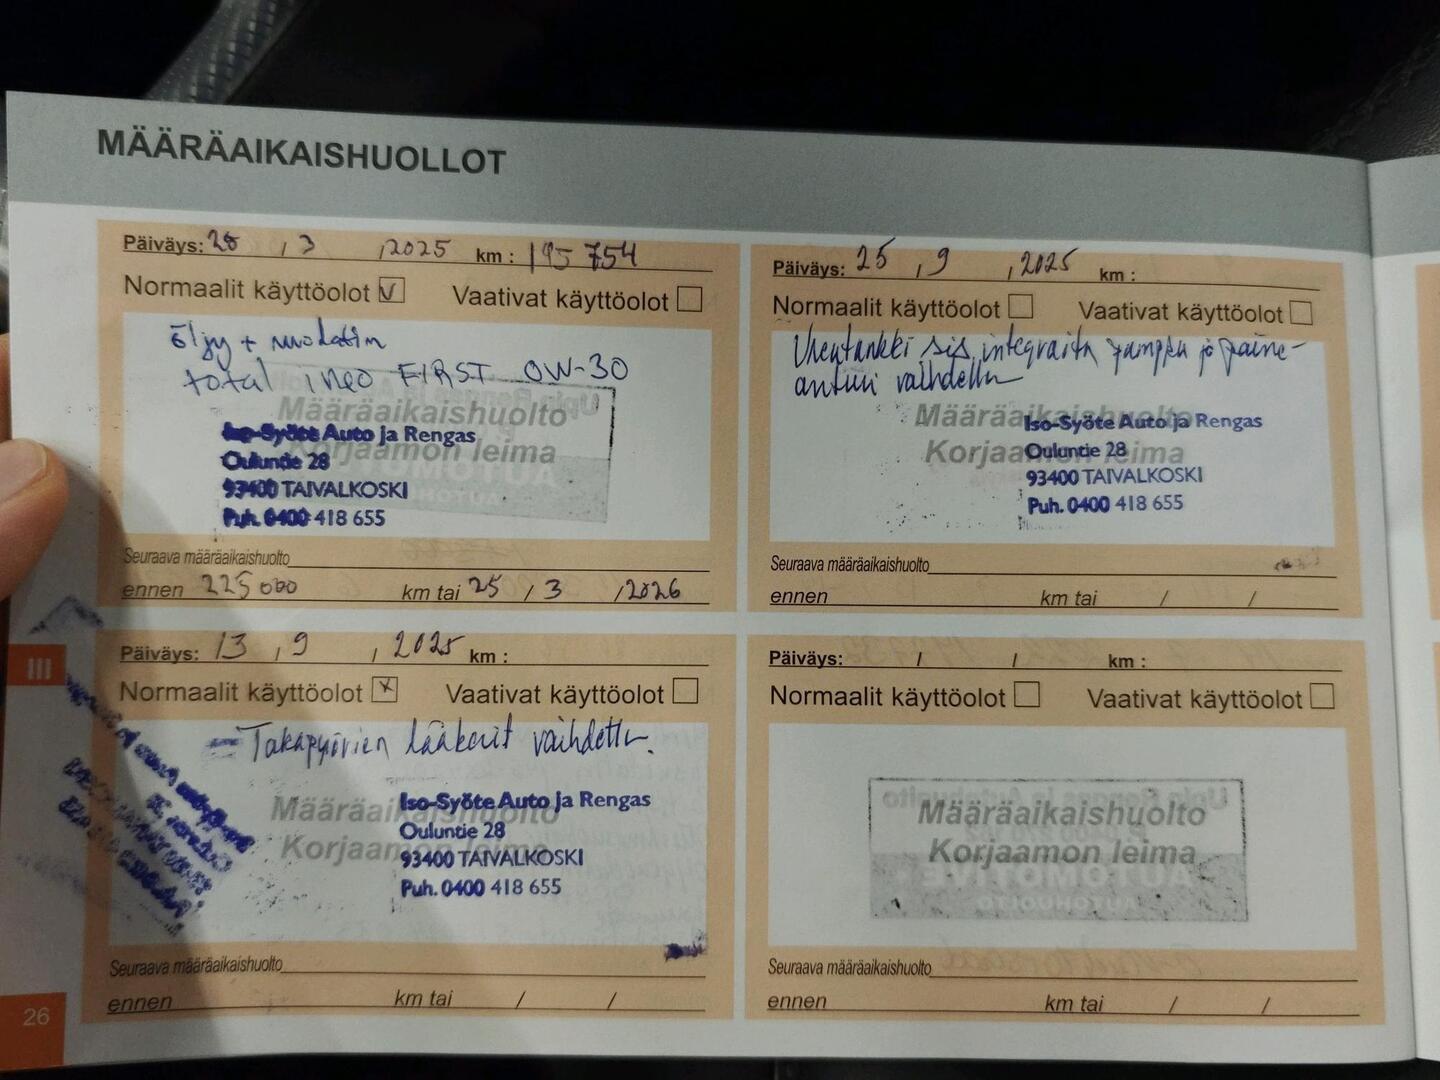 MÄÄRÄAIKAISHUOLLOT
Päiväys: 28 , 3 , 2025 km : 195 754
Normaalit käyttöolot V Vaativat käyttöolot
öljy + suodatin
total ineo FIRST 0W-30
Määräaikaishuolto
Korjaamon leima
Iso-Syöte Auto ja Rengas
Ouluntie 28
93400 TAIVALKOSKI
Puh. 0400 418 655
Seuraava määräaikaishuolto
ennen 225 000 km tai 25 / 3 / 2026
Päiväys: 25 , 9 , 2025 km :
Normaalit käyttöolot Vaativat käyttöolot
Ureatankki sis, integroitu pumppu ja paine-
anturi vaihdettu
Määräaikaishuolto
Korjaamon leima
Iso-Syöte Auto ja Rengas
Ouluntie 28
93400 TAIVALKOSKI
Puh. 0400 418 655
Seuraava määräaikaishuolto
ennen km tai / /
III
Päiväys: 13 , 9 , 2025 km :
Normaalit käyttöolot x Vaativat käyttöolot
= Takapyörien laakerit vaihdettu.
Määräaikaishuolto
Korjaamon leima
Iso-Syöte Auto ja Rengas
Ouluntie 28
93400 TAIVALKOSKI
Puh. 0400 418 655
Seuraava määräaikaishuolto
ennen km tai / /
Päiväys: / / km :
Normaalit käyttöolot Vaativat käyttöolot
Määräaikaishuolto
Korjaamon leima
Seuraava määräaikaishuolto
ennen km tai / /
26